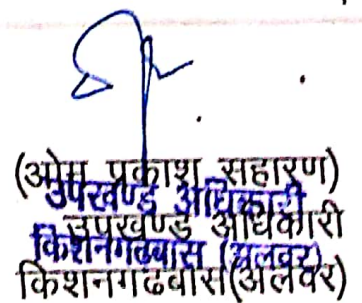 (ओम प्रकाश सहारण)
उपखण्ड अधिकारी
उपखण्ड अधिकारी
किशनगढबास (अलवर)
किशनगढवास(अलवर)